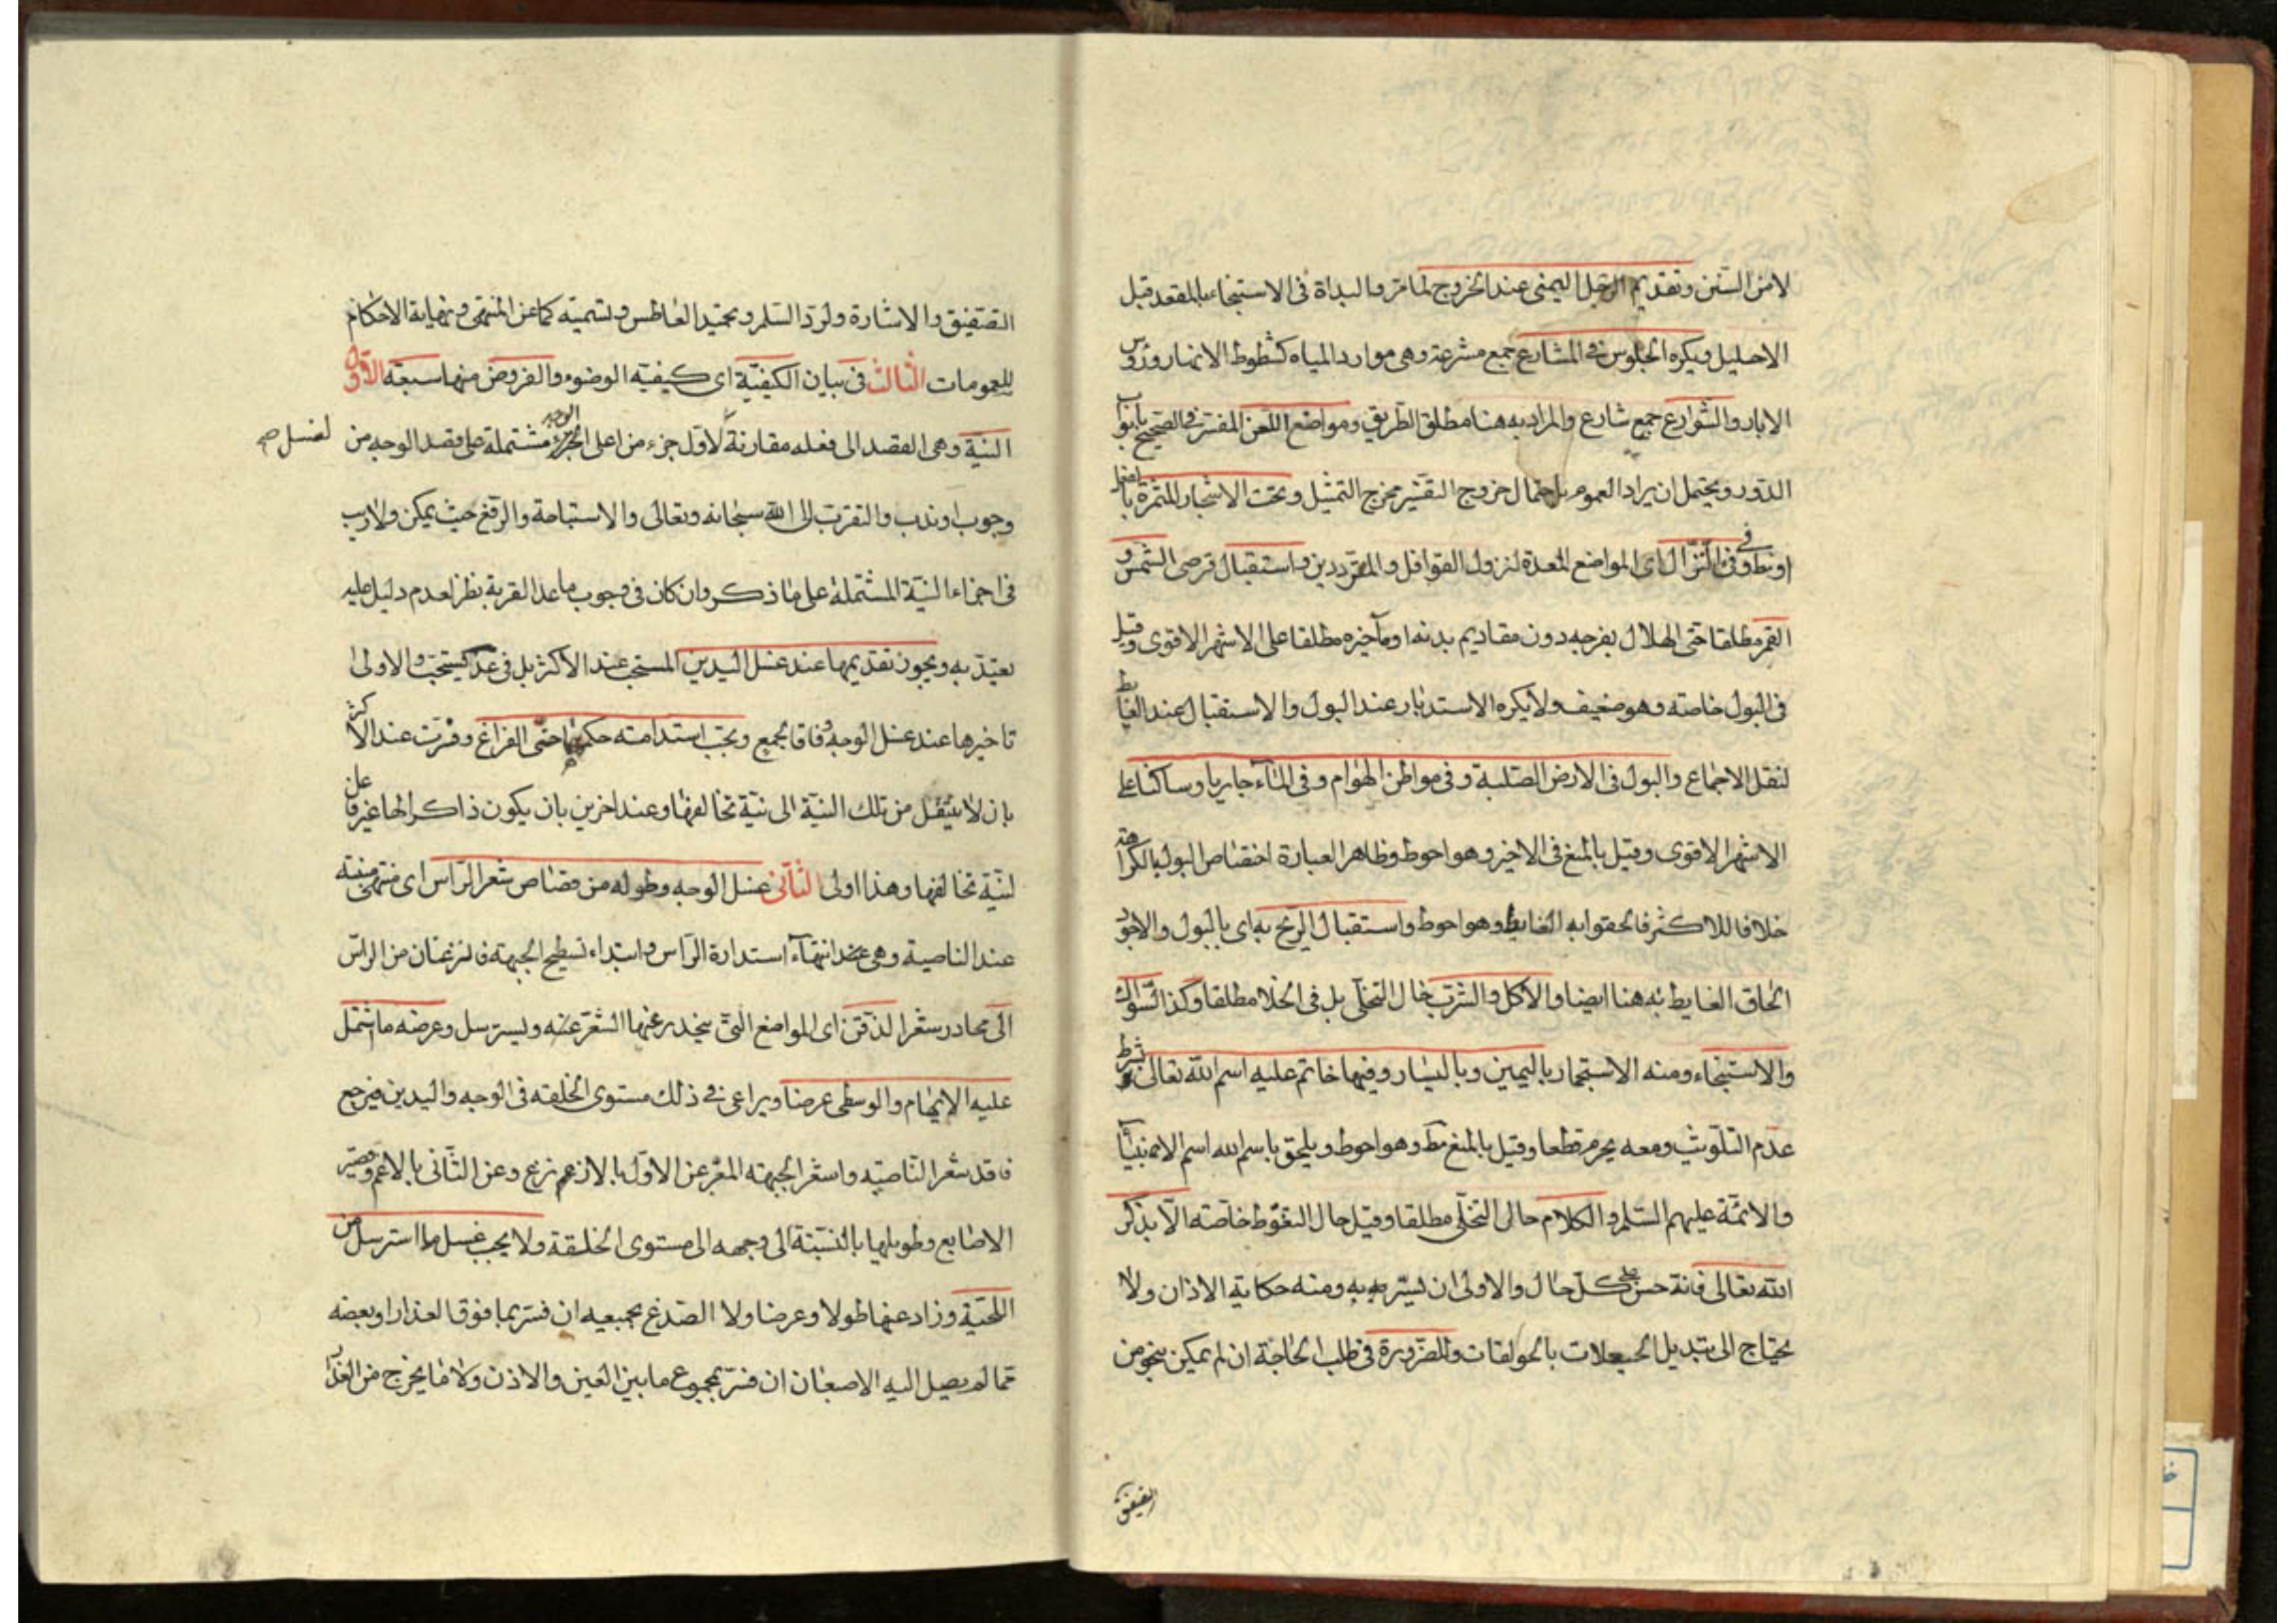 لامن السنن وتقديم الرجل اليمنى عند الخروج لما مر والبداة فى الاستنجاء بالمقعد قبل
الاحليل ويكره الجلوس فى المشارع جمع مشرعة وهى موارد المياه كشطوط الانهار ورؤس
الابار والشوارع جمع شارع والمراد به هنا مطلق الطريق ومواضع اللعن المفسر فى الصحيح بابواب
الدور ويحتمل ان يراد العموم باحتمال خروج التفسير مخرج التمثيل وتحت الاشجار المثمرة بالفعل
او فى النزال اى المواضع المعدة لنزول القوافل والمترددين واستقبال قرصى الشمس و
القمر مطلقا حتى الهلال بفرجه دون مقاديم بدنه او مآخيره مطلقا على الاشهر الاقوى وقيل
فى البول خاصته وهو ضعيف ولا يكره الاستدبار عند البول والاستقبال عند الغايط
لنقل الاجماع والبول فى الارض الصلبة وفى مواطن الهوام وفى الماء جاريا وساكنا على
الاشهر الاقوى وقيل بالمنع فى الاخير وهو احوط وظاهر العبارة اختصاص البول بالكراهة
خلافا للاكثر فالحقوا به الغايط وهو احوط واستقبال الريح به اى بالبول والاجود
الحاق الغايط به هنا ايضا والاكل والشرب حال التخلى بل فى الخلا مطلقا وكذا السواك
والاستنجاء ومنه الاستجمار باليمين وباليسار وفيها خاتم عليه اسم الله تعالى بشرط
عدم التلويث ومعه يحرم قطعا وقيل بالمنع مط وهو احوط ويلحق باسم الله اسم الانبيآء
والائمة عليهم السلم والكلام حال التخلى مطلقا وقيل حال التغوط خاصته الا بذكر
الله تعالى فانة حسن على كل حال والاولى ان يسر به ومنه حكاية الاذان ولا
يحتاج الى تبديل الحيعلات بالحولقات وللضرورة فى طلب الحاجة ان لم يمكن بنحو من
التصفيق
التصفيق والاشارة ولرد السلم وتحميد العاطس وتسميته كما عن المنتهى ونهاية الاحكام
للعمومات الثالث فى بيان الكيفية اى كيفيته الوضوء والفروض منها سبعة الاول
النية وهى القصد الى فعله مقارنة لاول جزء من اعلى الوجه مشتملة على قصد الوجه من
لغسل صح
وجوب او ندب والتقرب الى الله سبحانه وتعالى والاستباحة والرفع حيث يمكن ولا ريب
فى اجزاء النية المشتملة على ما ذكر وان كان فى وجوب ما عدا القربة نظر لعدم دليل عليه
يعتد به ويجوز تقديمها عند غسل اليدين المستحب عند الاكثر بل فى عد كيستحب والاولى
تاخيرها عند غسل الوجه وفاقا لجمع ويجب استدامته حكمها حتى الفراغ وفسرت عند الاكثر
بان لا ينتقل من تلك النية الى نية تخالفها وعند اخرين بان يكون ذاكرا لها غير فاعل
لنية تخالفها وهذا اولى الثانى غسل الوجه وطوله من قصاص شعر الراس اى منتهى منبته
عند الناصية وهى عند انتهاء استدارة الراس وابتداء تسطيح الجبهة فالنزعتان من الراس
الى محادر شعر الذقن اى المواضع التى ينحدر عنها الشعر عنه ويسترسل وعرضه ما اشتمل
عليه الابهام والوسطى عرضا ويراعى فى ذلك مستوى الخلقه فى الوجه واليدين فيرجع
فاقد شعر الناصيه واشعر الجبهته المعبر عن الاول بالانزع وعن الثانى بالاغم وقصير
الاصابع وطويلها بالنسبتة الى وجهه الى مستوى الخلقة ولا يجب غسل ما استرسل من
اللحية وزاد عنها طولا وعرضا ولا الصدغ بجميعه ان فسر بما فوق العذار او بعضه
مما لم يصل اليه الاصبعان ان فسر بمجموع ما بين العين والاذن ولا ما يخرج من العذار